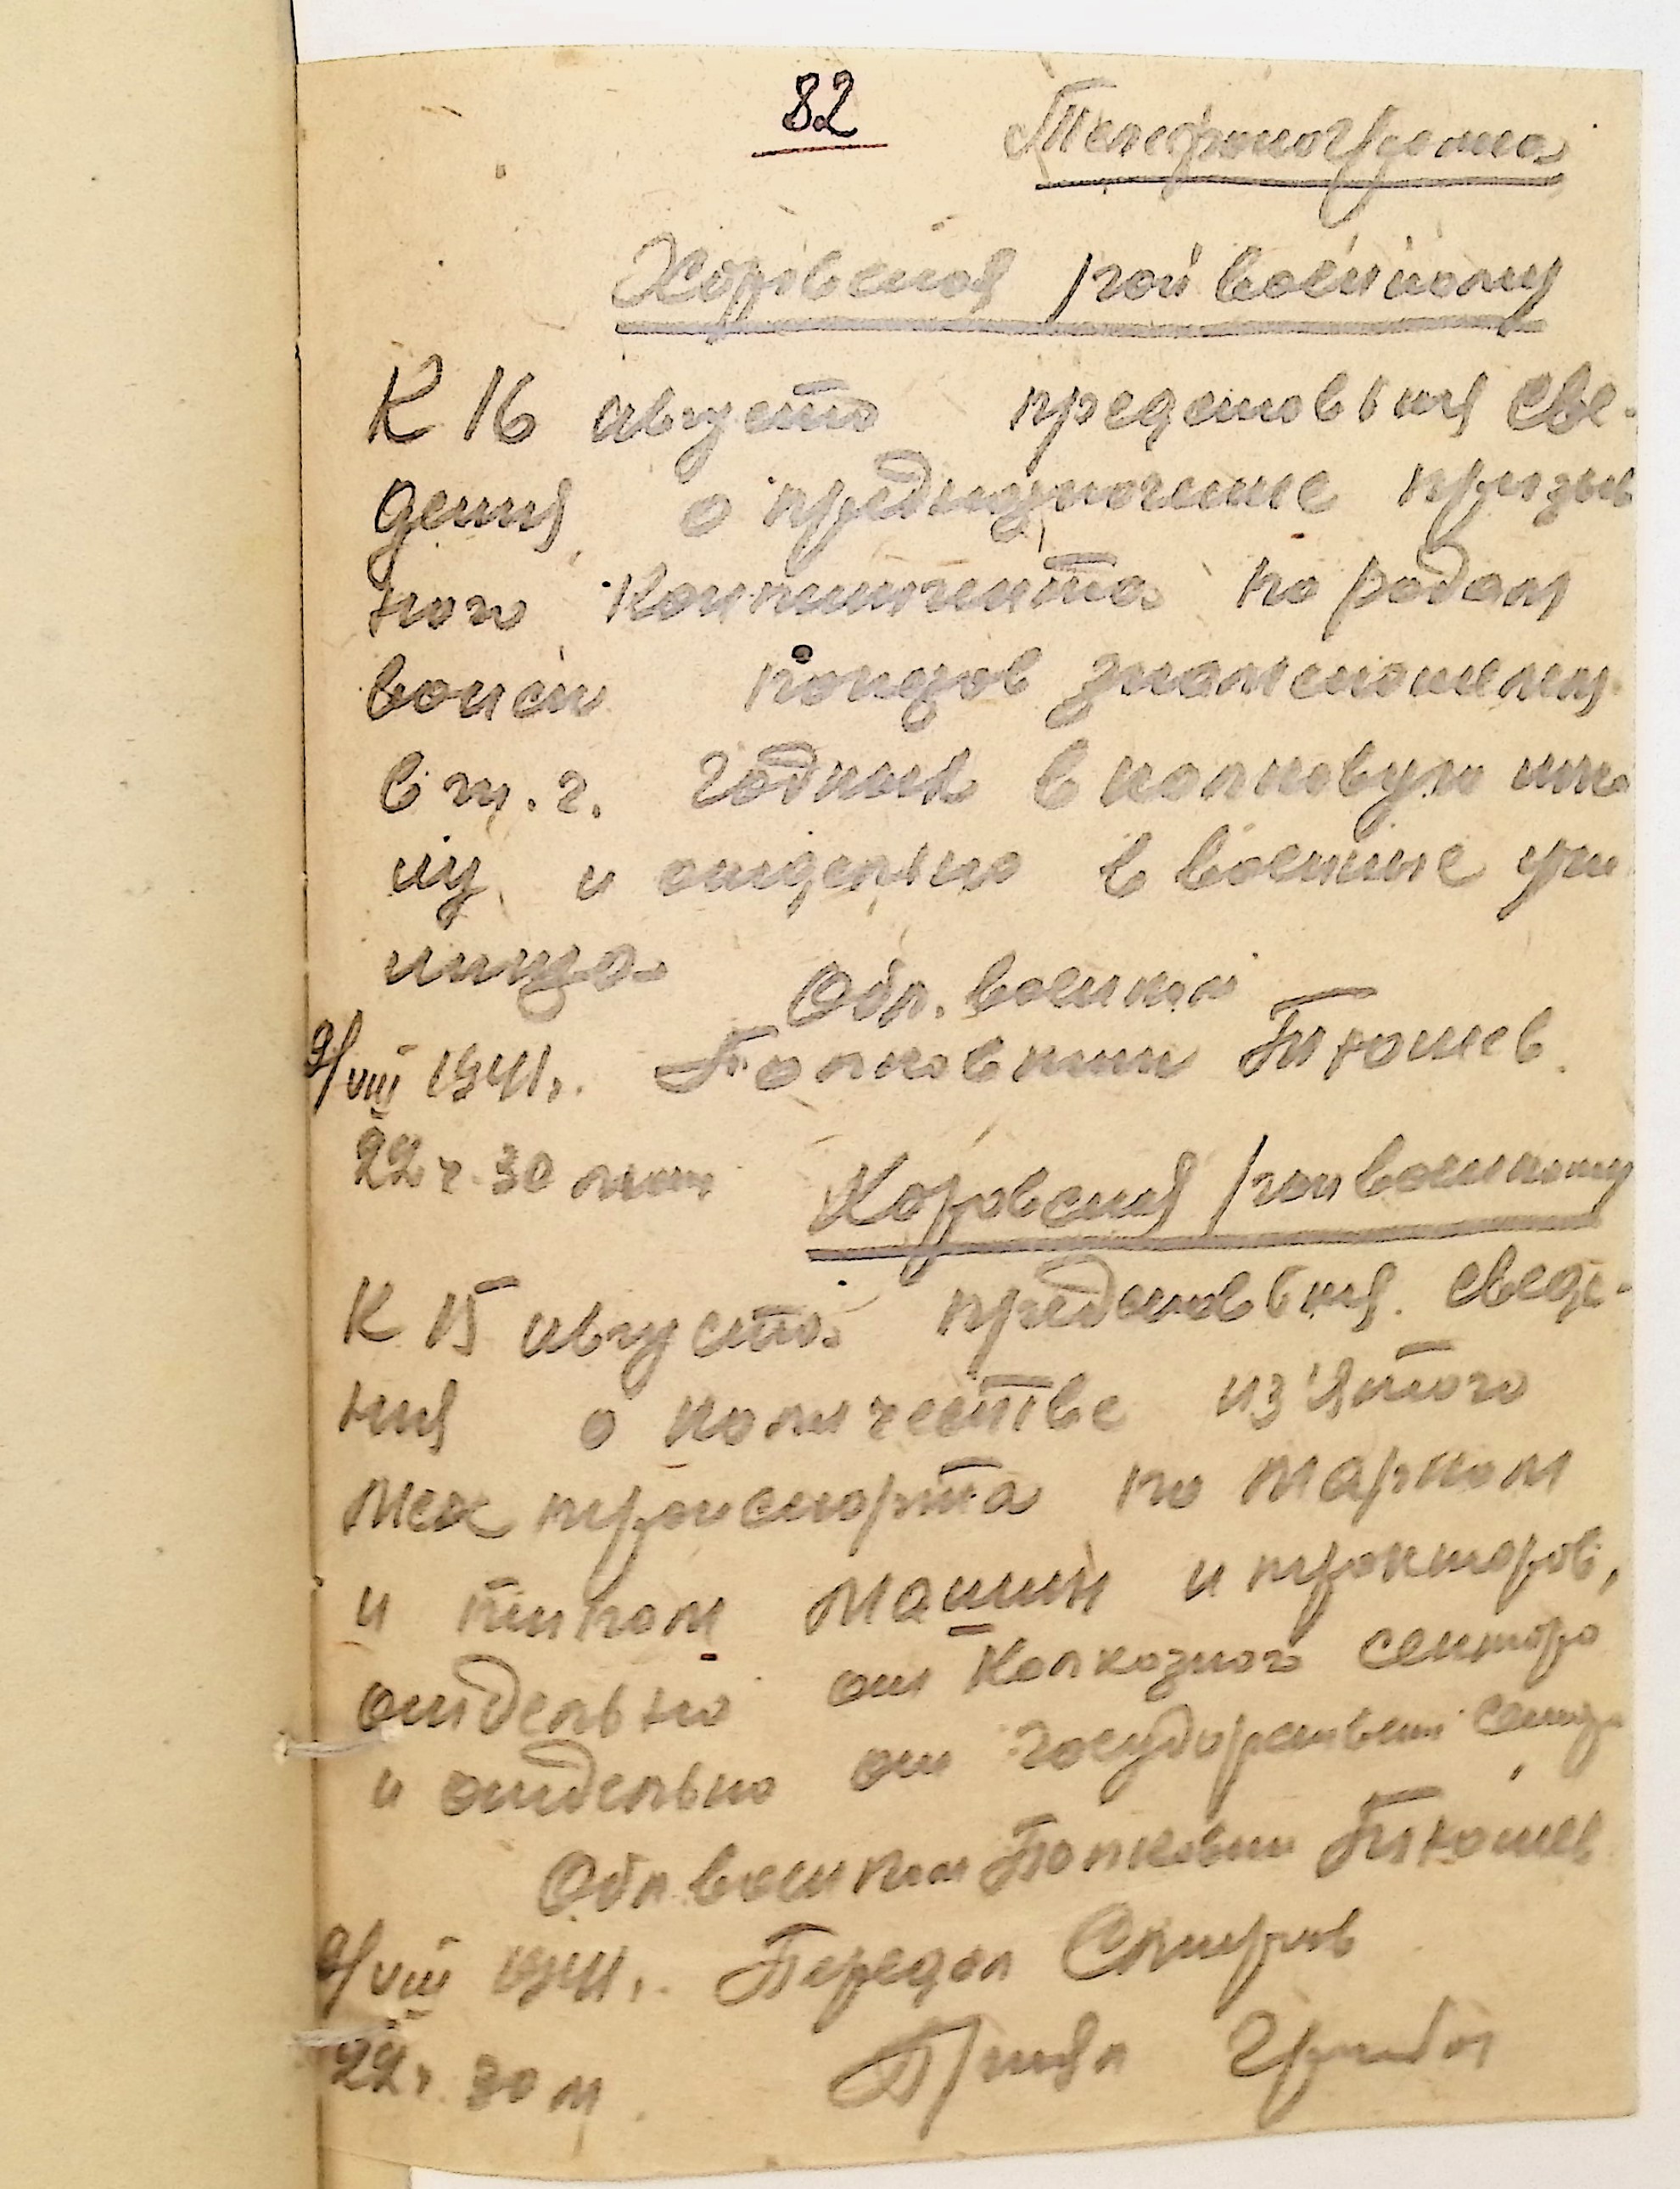 82
Телефонограмма
Хоровская райвоенкому
К 16 августа представия све-
дения о предназначение призыв
ного контингента по родам
войск
в т.ч. годных в полковую шко
лу и отдельно в военные учи
лища.
Обл. военком
9/VIII 1941. Полковник
22 ч. 30 мин
Хоровская райвоенкому
К 15 августа представия сведе-
ния о количестве из'ятого
мех транспорта по маркам
и типам машин и тракторов,
отдельно от колхозного сектора
и отдельно от государствен сектор
Обл военком Полковник
9/VIII 1941. Передал
22 ч. 30 м. Принял